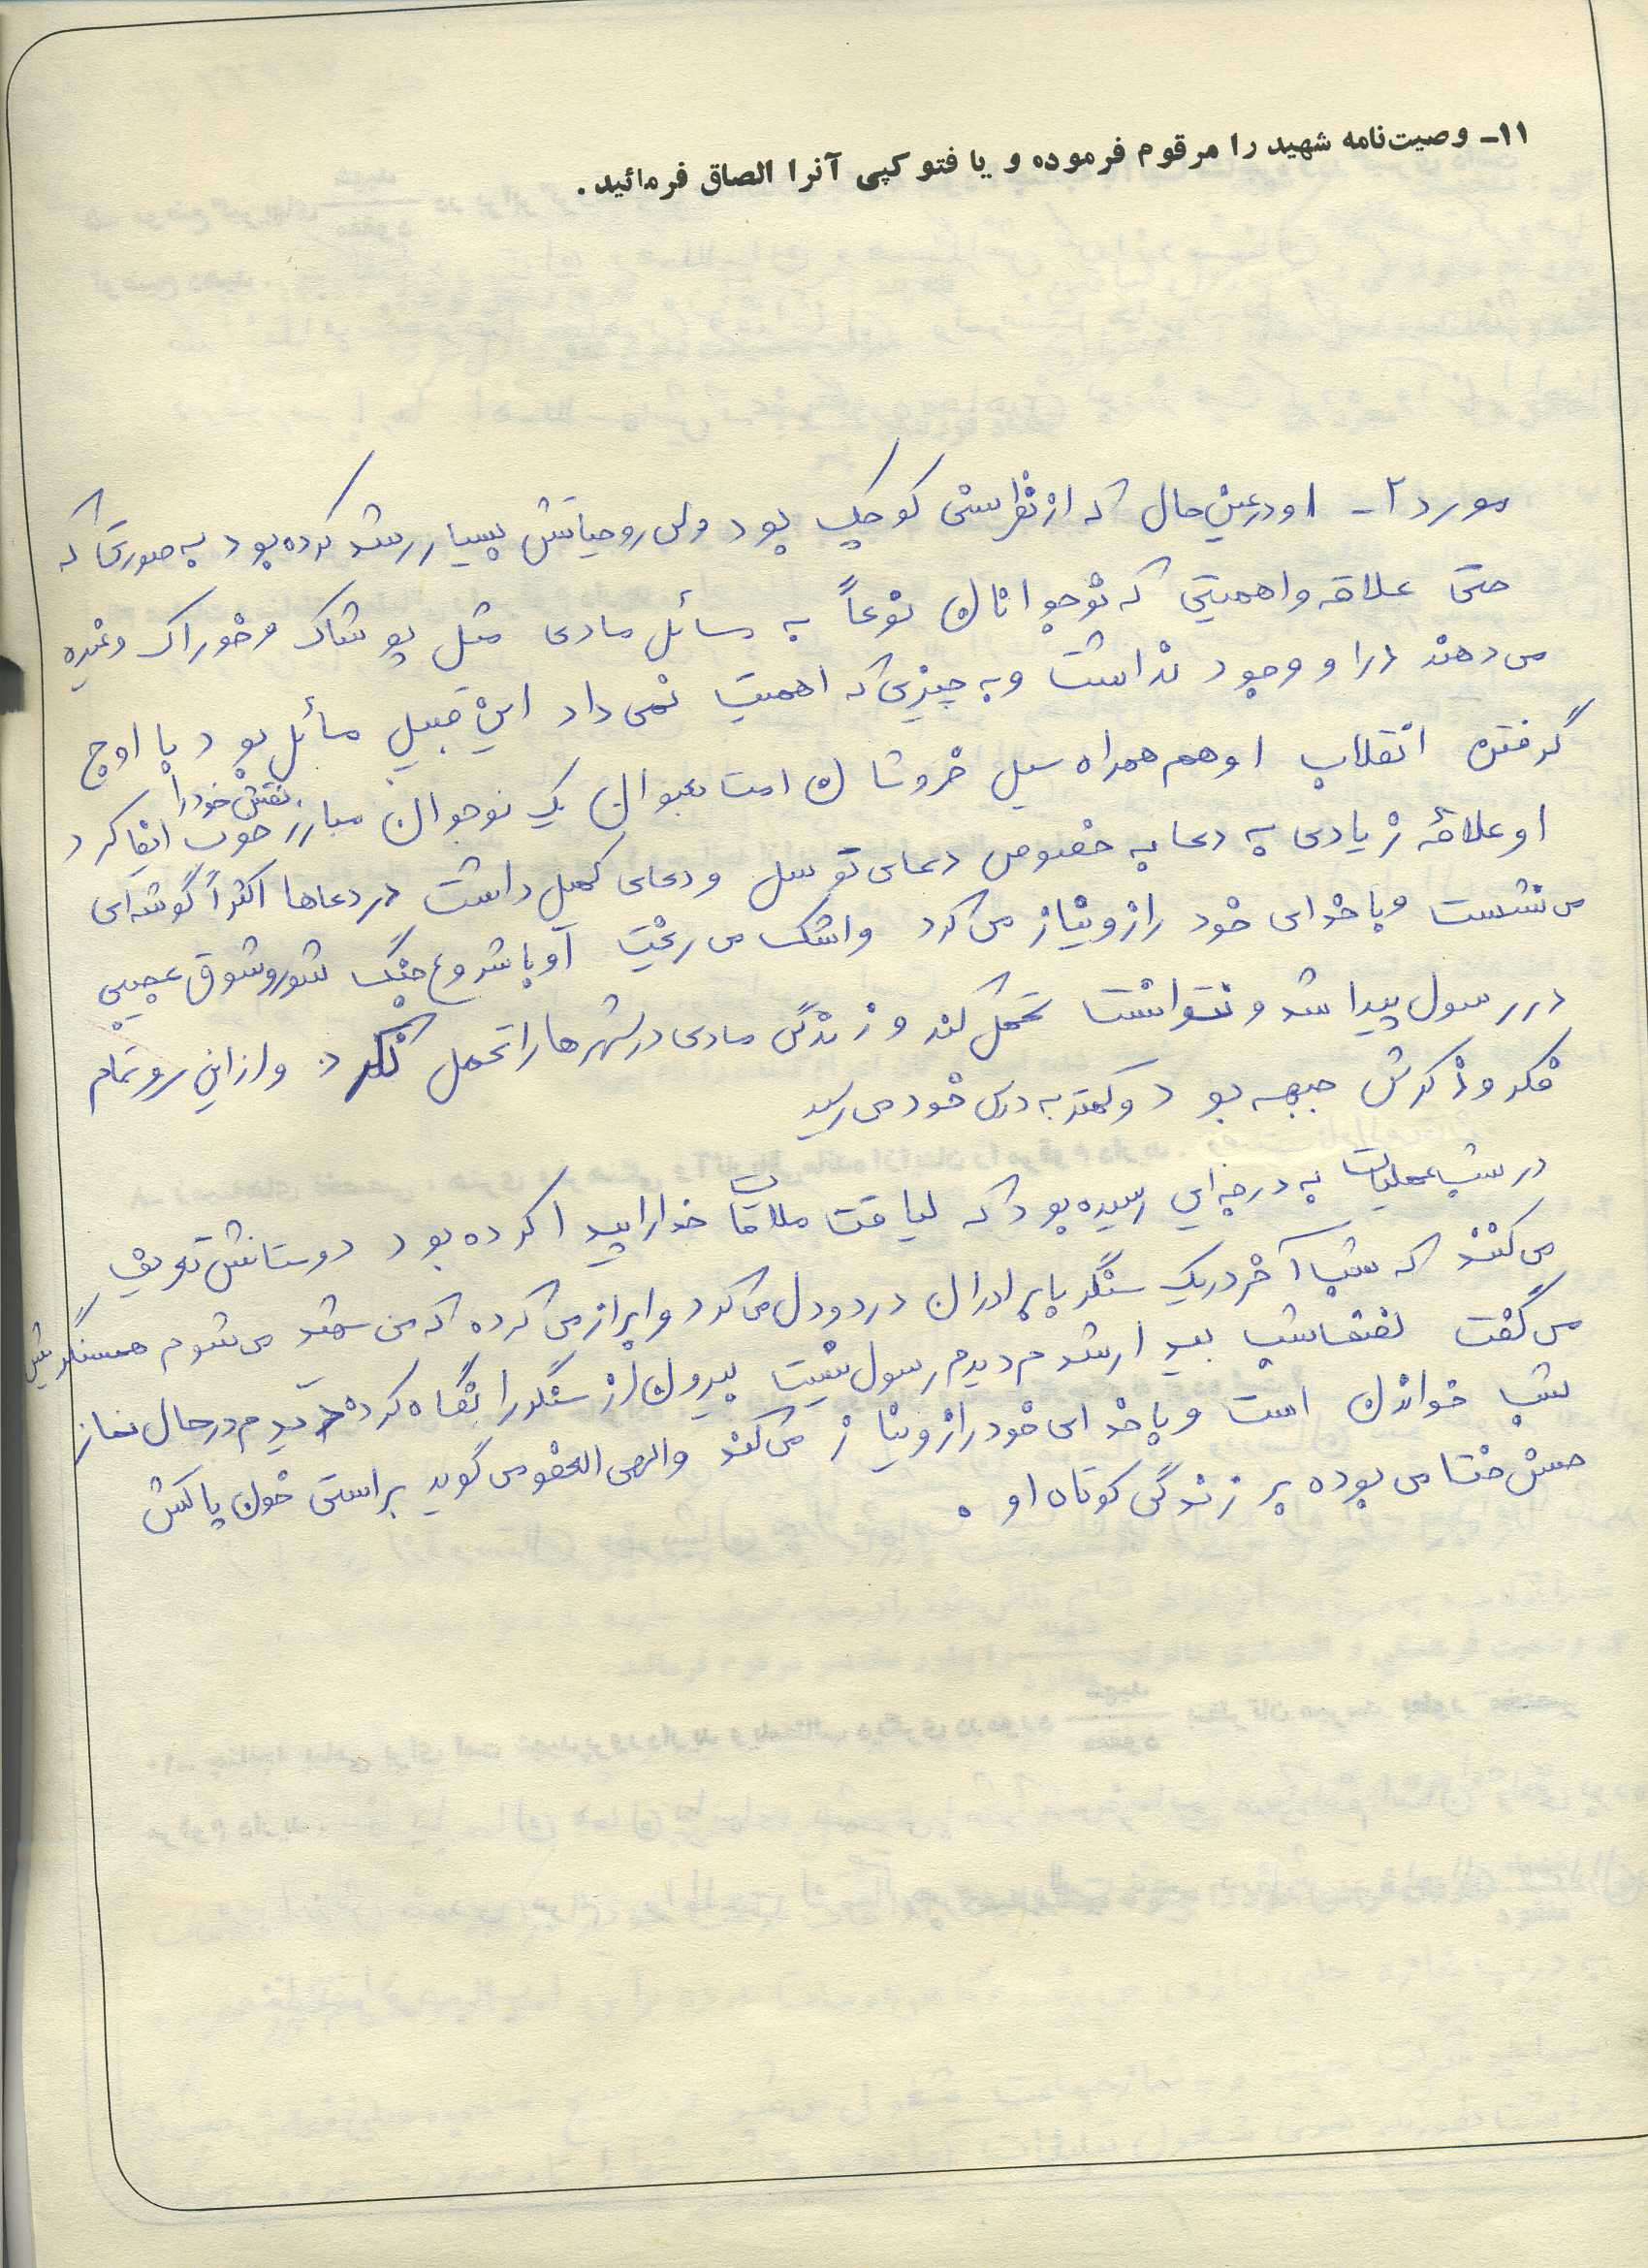 ۱۱- وصیت‌نامه شهید را مرقوم فرموده و یا فتوکپی آنرا الصاق فرمائید.
مورد ۲- او درعین حال که از نظر سنی کوچک بود ولی روحیاتش بسیار رشد کرده بود به صورتی که
حتی علاقه و اهمیتی که نوجوانان نوعاً به مسائل مادی مثل پوشاک و خوراک و غیره
می دهند در او وجود نداشت و به چیزی که اهمیت نمی داد این قبیل مسائل بود با اوج
گرفتن انقلاب او هم همراه سیل خروشان امت بعنوان یک نوجوان مبارز نقش خود را خوب ایفا کرد
او علاقهٔ زیادی به دعا به خصوص دعای توسل و دعای کمیل داشت در دعاها اکثراً گوشه ای
می نشست و با خدای خود راز و نیاز می کرد و اشک می ریخت و با شروع جنگ شور و شوق عجیبی
در رسول پیدا شد و نتوانست تحمل کند و زندگی مادی در شهرها را تحمل نکرد و از این رو تمام
فکر و ذکرش جبهه بود و کمتر به درس خود می رسید
در شب عملیات به درجه ایی رسیده بود که لیاقت ملاقات خدا را پیدا کرده بود دوستانش تعریف
می کنند که شب آخر در یک سنگر با برادران درد و دل می کرد و ابراز می کرده که من شهید می شوم همسنگریش
می گفت نصفه شب بیدار شدم دیدم رسول نیست بیرون از سنگر را نگاه کردم دیدم در حال نماز
شب خواندن است و با خدای خود راز و نیاز می کند و الهی العفو می گوید براستی خون پاکش
حسن ختامی بوده بر زندگی کوتاه او .